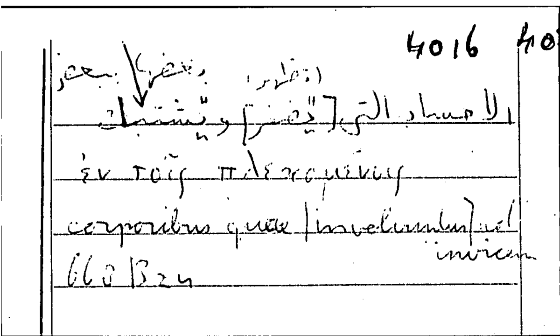 4016 40
بعضها ببعض
الاجساد التى [تضفر] وتشتبك
ἐν τοῖς πλεκομένοις
corporibus quae [involvuntur] ad
invicem
660 B 24